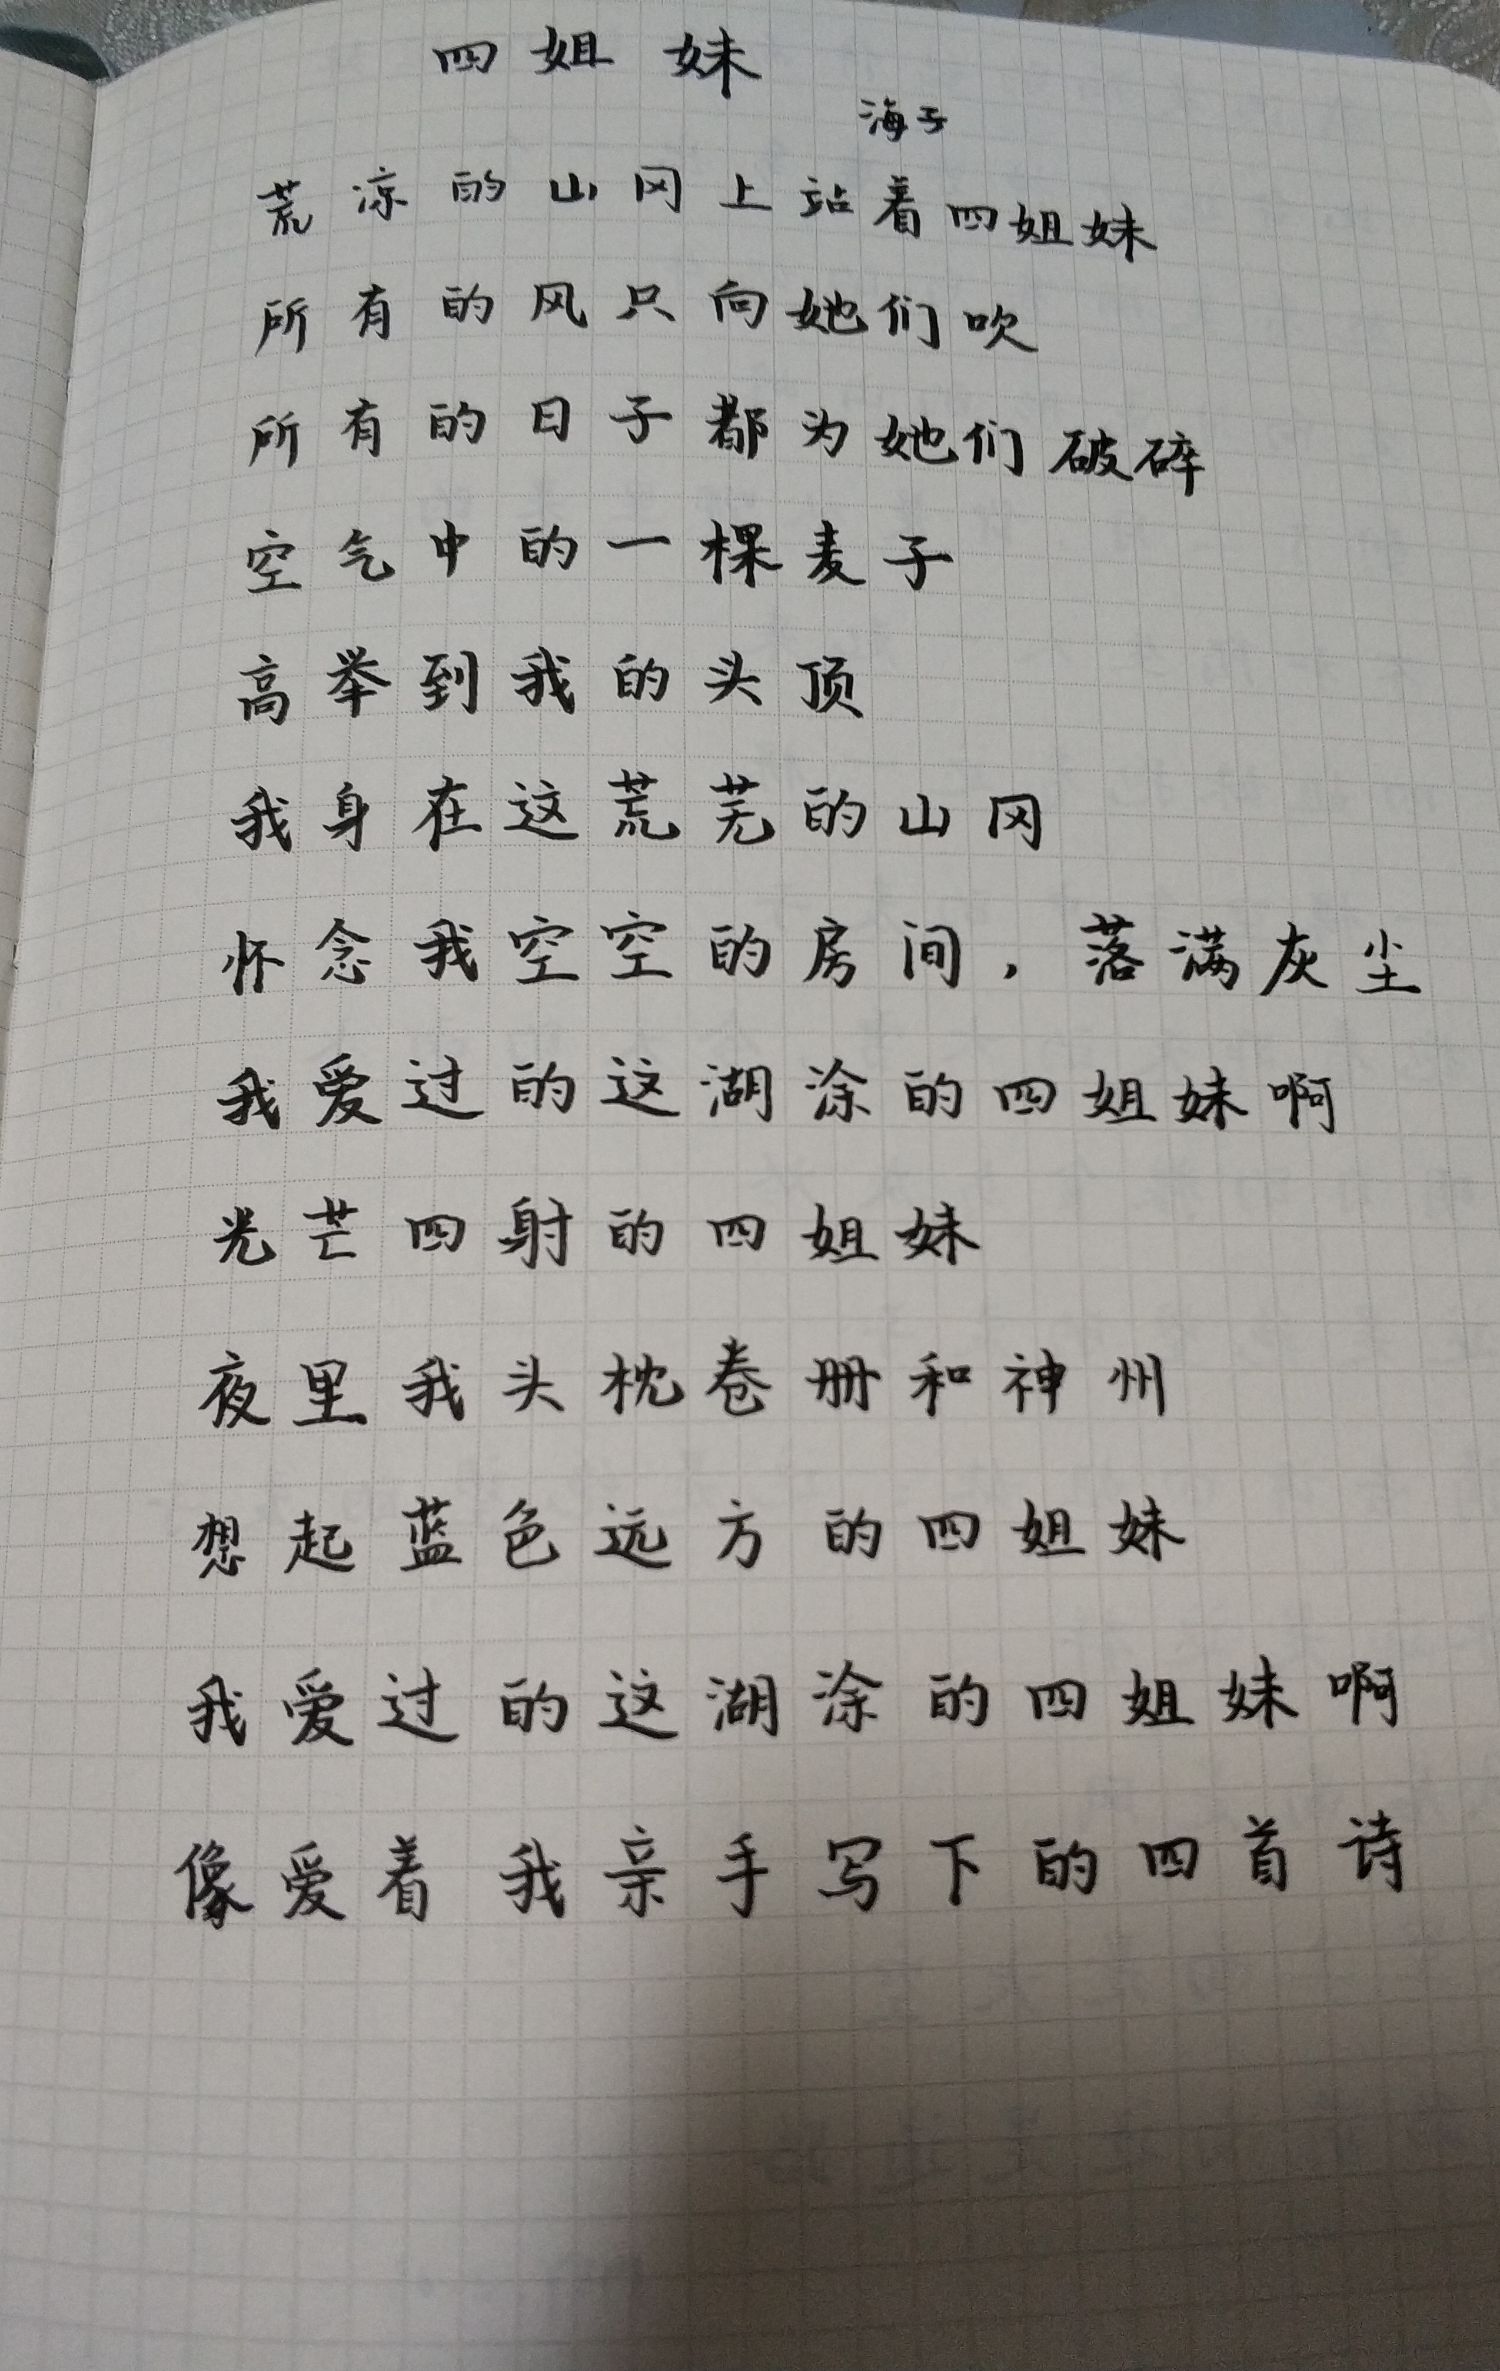 四姐妹
海子
荒凉的山冈上站着四姐妹
所有的风只向她们吹
所有的日子都为她们破碎
空气中的一棵麦子
高举到我的头顶
我身在这荒芜的山冈
怀念我空空的房间，落满灰尘
我爱过的这湖涂的四姐妹啊
光芒四射的四姐妹
夜里我头枕卷册和神州
想起蓝色远方的四姐妹
我爱过的这湖涂的四姐妹啊
像爱着我亲手写下的四首诗